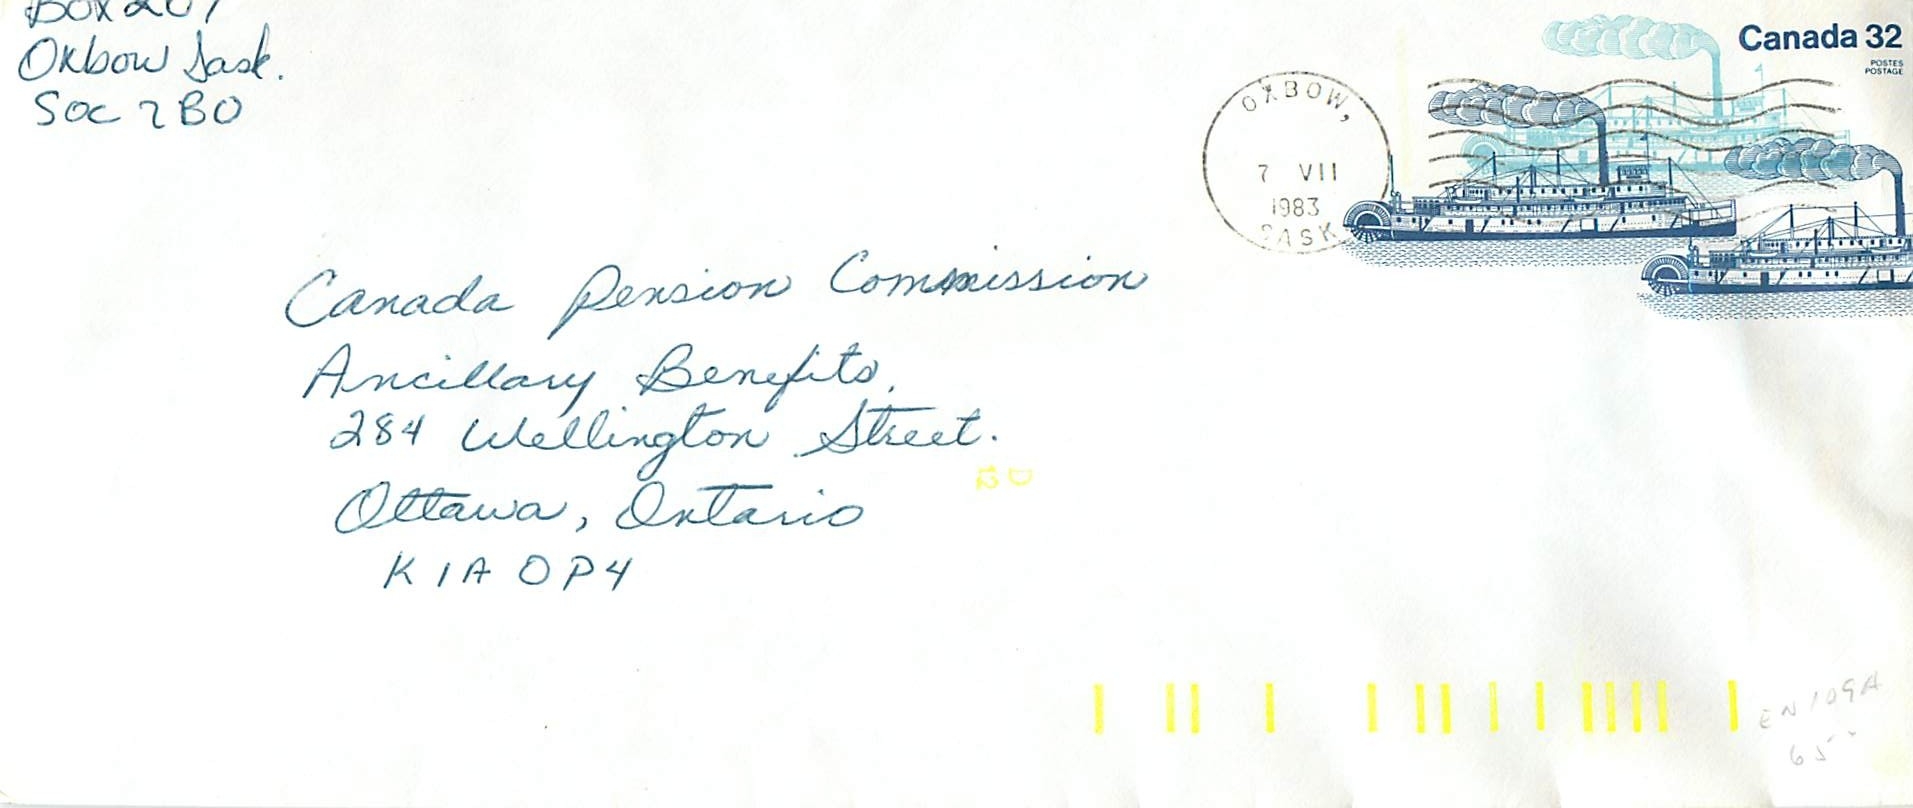 Box 207
Oxbow Sask.
S0C 2B0
Canada 32
POSTES
POSTAGE
OXBOW,
7 VII
1983
SASK
Canada Pension Commission
Ancillary Benefits,
284 Wellington Street.
Ottawa, Ontario
K1A 0P4
EN109A
65